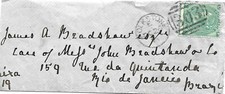 James A Bradshaw Esqre
Care of Messrs John Bradshaw & Co
159 Rua da Quintanda
Rio de Janeiro
Braz